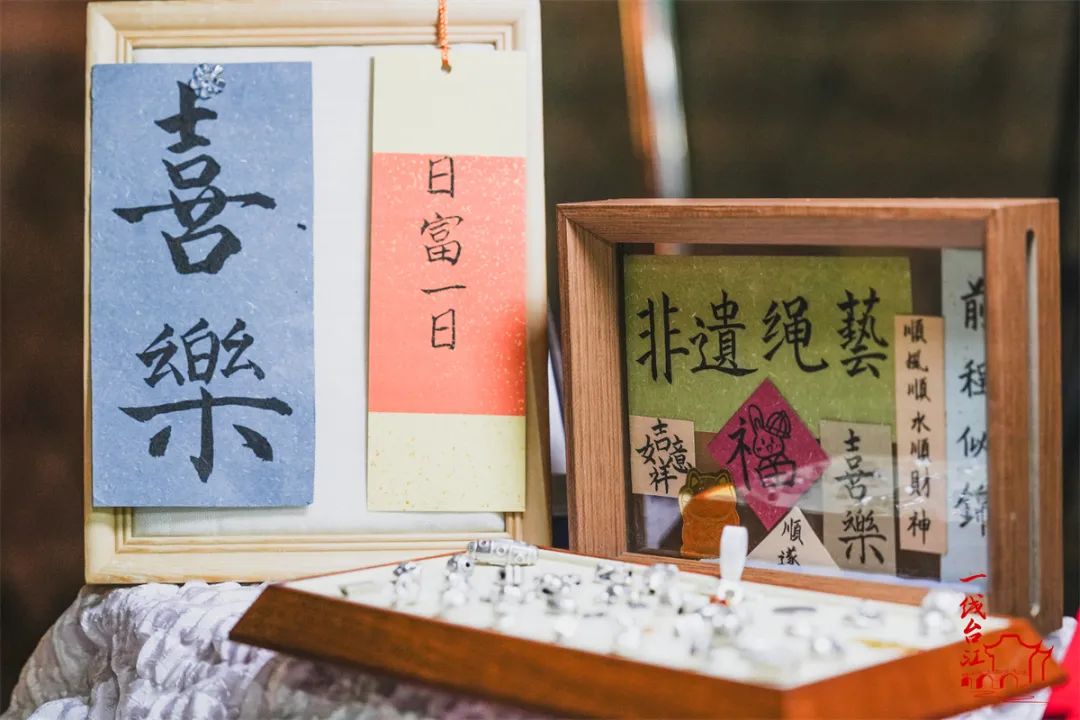 喜樂
日富一日
非遺绳藝
前程似錦
順風順水順財神
吉祥
如意
福
喜樂
順遂
一线台江